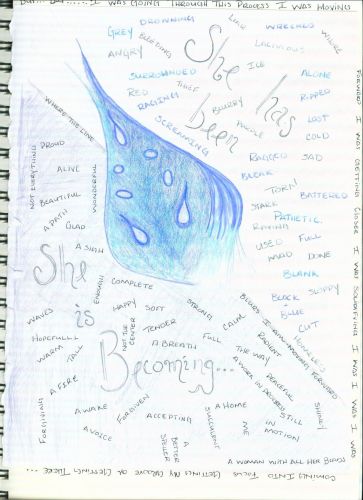 I WAS GOING THROUGH THIS PROCESS I WAS MOVING
FORWARD I WAS GETTING CLOSER I WAS
I WAS I WAS
COMING INTO FOCUS GETTING MY GROOVE ON GETTING THERE ...
She has
been
DROWNING
LIAR
WRECKED
WHORE
GREY
BLEEDING
ANGRY
LACIVIOUS
ICE
ALONE
SURROUNDED
THIEF
RIPPED
RED
BLURRY
RAGING
LOST
SCREAMING
COLD
RAGGED
SAD
BLEAK
TORN
BATTERED
STARK
PATHETIC
USED
FULL
MAD
DONE
BLANK
BLACK
&
BLUE
SLOPPY
CUT
WHERE THE LINE
PROUD
NOT EVERYTHING
ALIVE
BEAUTIFUL
WONDERFUL
A PATH
GLAD
A SIGH
She
is
Becoming...
ENOUGH
COMPLETE
WAVES
HAPPY
SOFT
STRONG
HOPEFULL
NOT THE CENTER
TENDER
CALM
WARM
TALL
A BREATH
FULL
THE WAY
RADIENT
HUMBLE
A FIRE
A WORK IN PROGRESS
PEACEFUL
FORGIVING
AWAKE
FORGIVEN
ACCEPTING
A HOME
STILL
IN MOTION
SHINEY
A VOICE
A BETTER SPELLER
SUCCULENT
ME
A WOMAN WITH ALL HER BIRDS